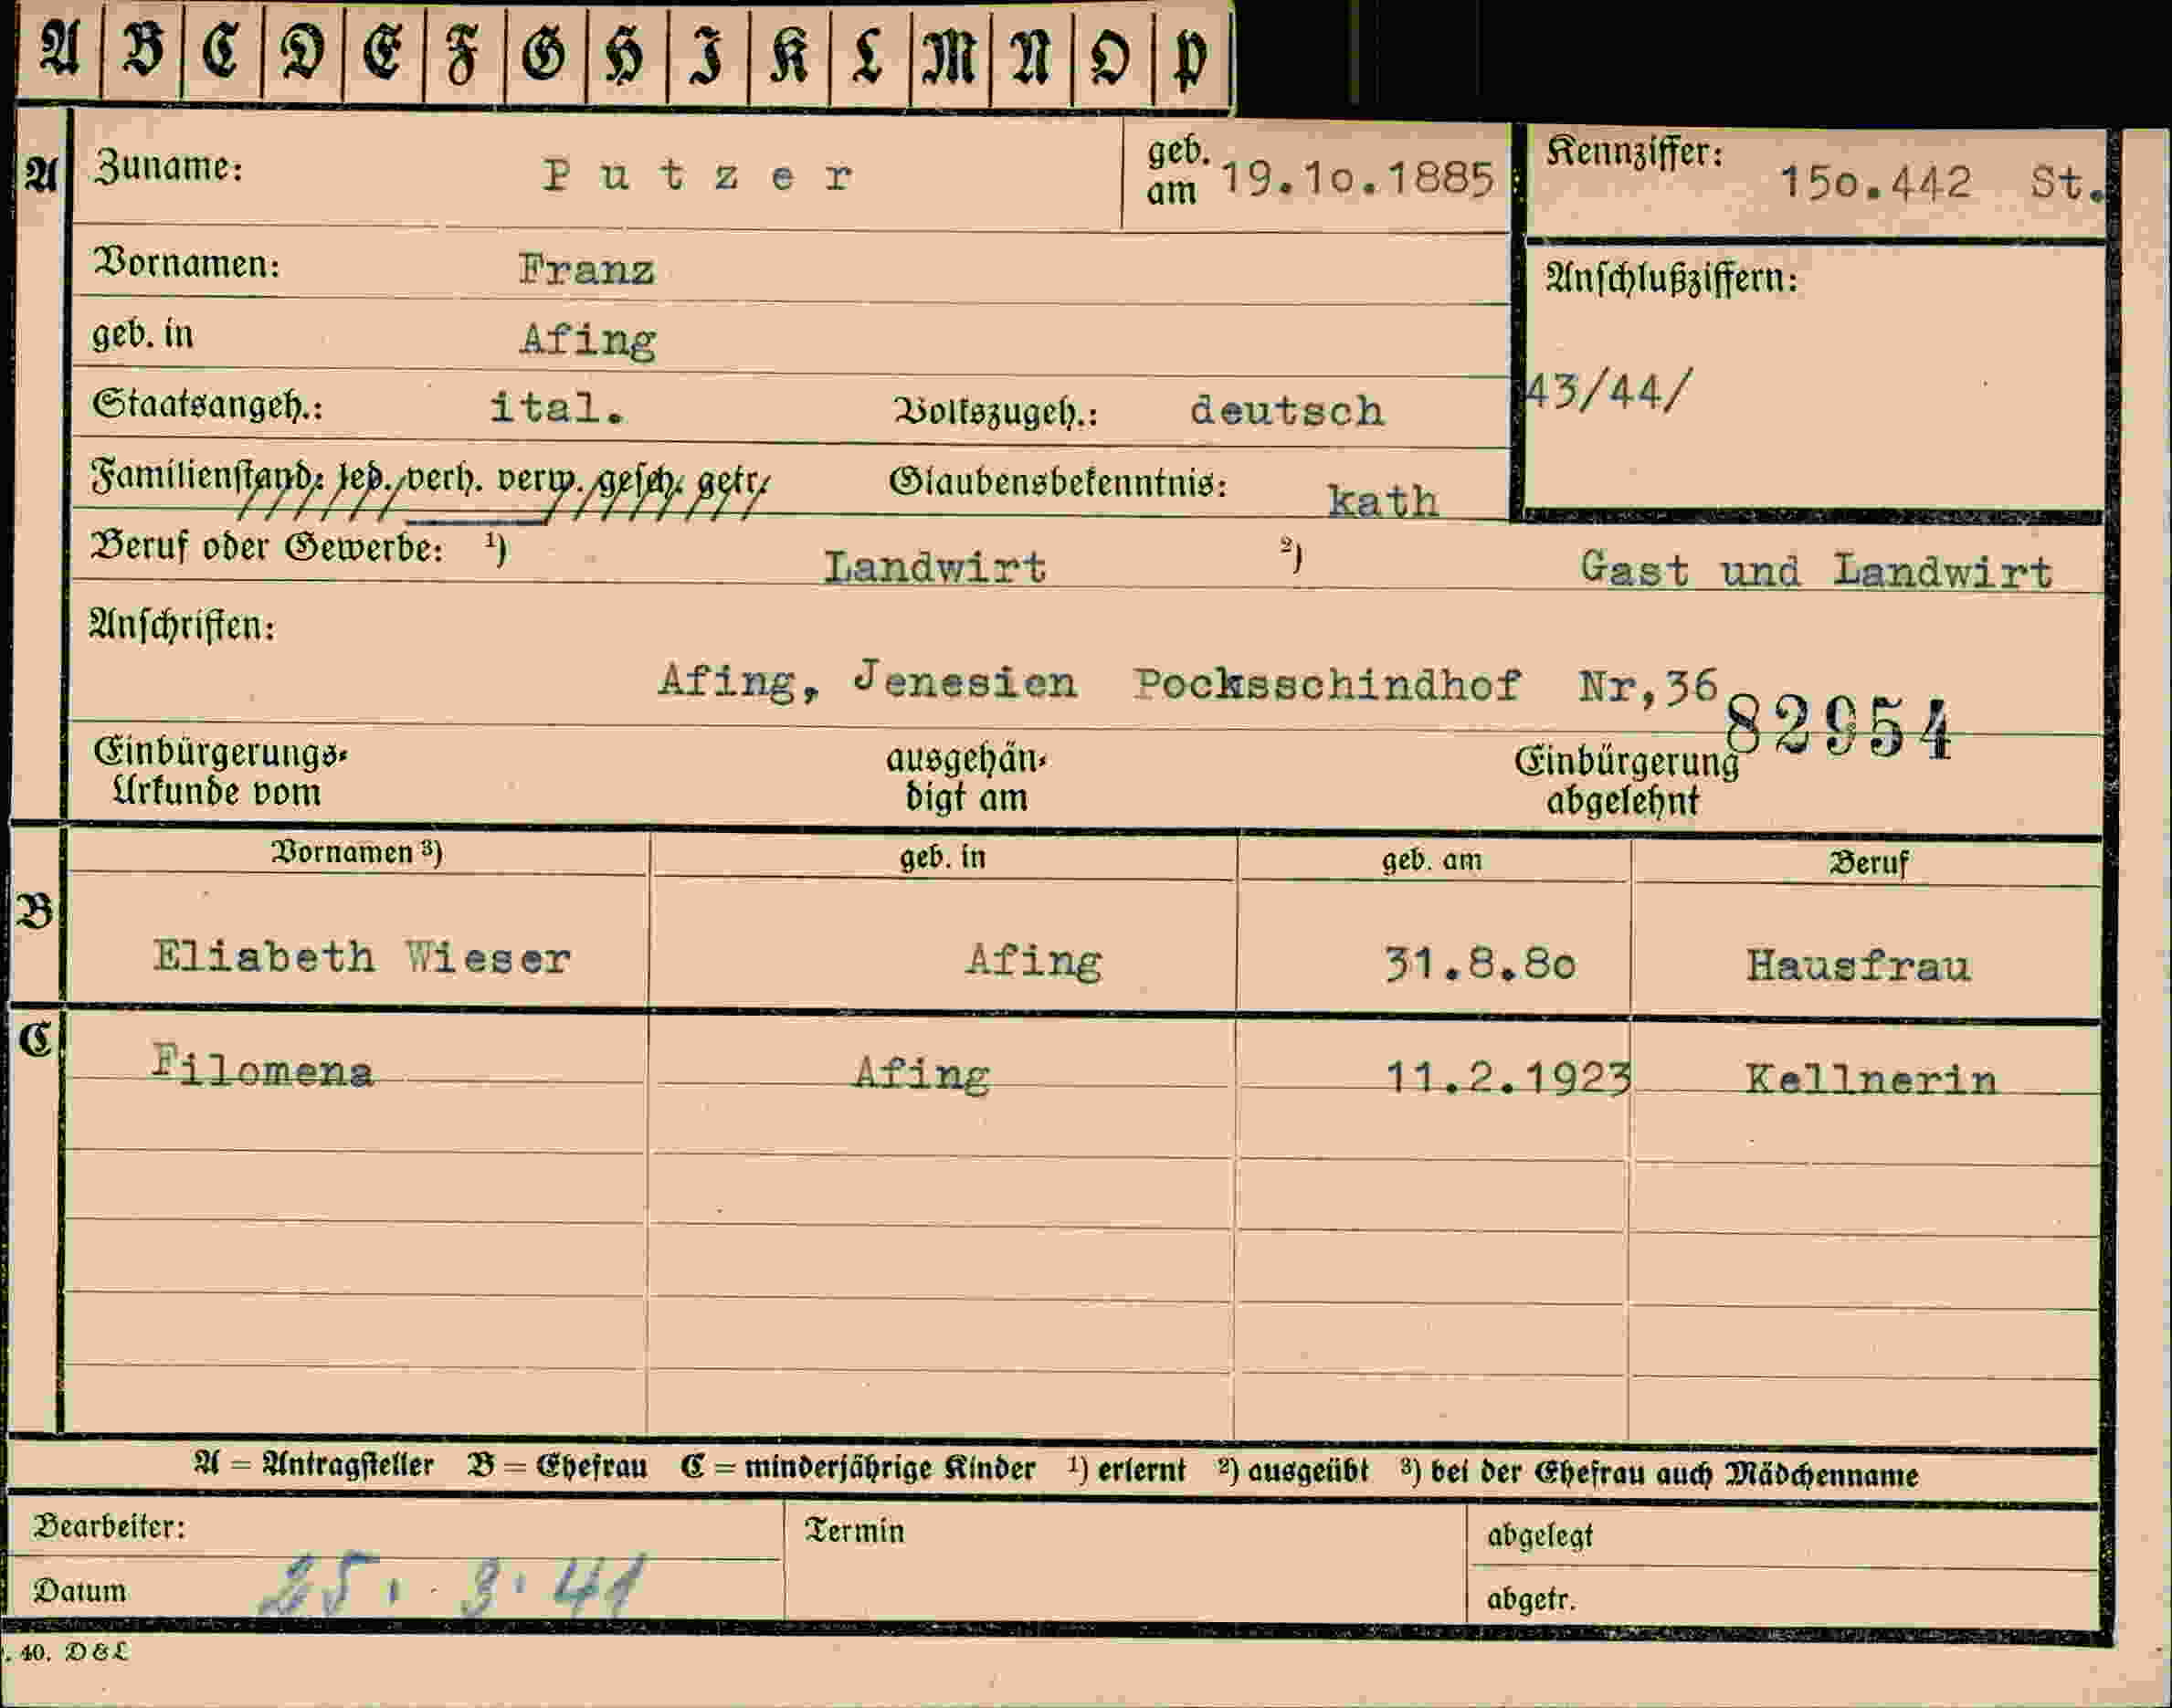 A B C D E F G H I K L M N O P
A Zuname: Putzer geb. am 19.10.1885 Kennziffer: 150.442 St.
Vornamen: Franz Anschlußziffern:
geb. in Afing
43/44/
Staatsangeh.: ital. Volkszugeh.: deutsch
Familienstand: led. verh. verw. gesch. getr. Glaubensbekenntnis: kath
Beruf oder Gewerbe: ¹) Landwirt ²) Gast und Landwirt
Anschriften:
Afing, Jenesien Pocksschindhof Nr,36
82954
Einbürgerungs- ausgehän- Einbürgerung
Urkunde vom digt am abgelehnt
Vornamen ³) geb. in geb. am Beruf
B Eliabeth Wieser Afing 31.8.80 Hausfrau
C Filomena Afing 11.2.1923 Kellnerin
A = Antragsteller B = Ehefrau C = minderjährige Kinder ¹) erlernt ²) ausgeübt ³) bei der Ehefrau auch Mädchenname
Bearbeiter: Termin abgelegt
Datum 25. 3. 41 abgetr.
. 40. D & L